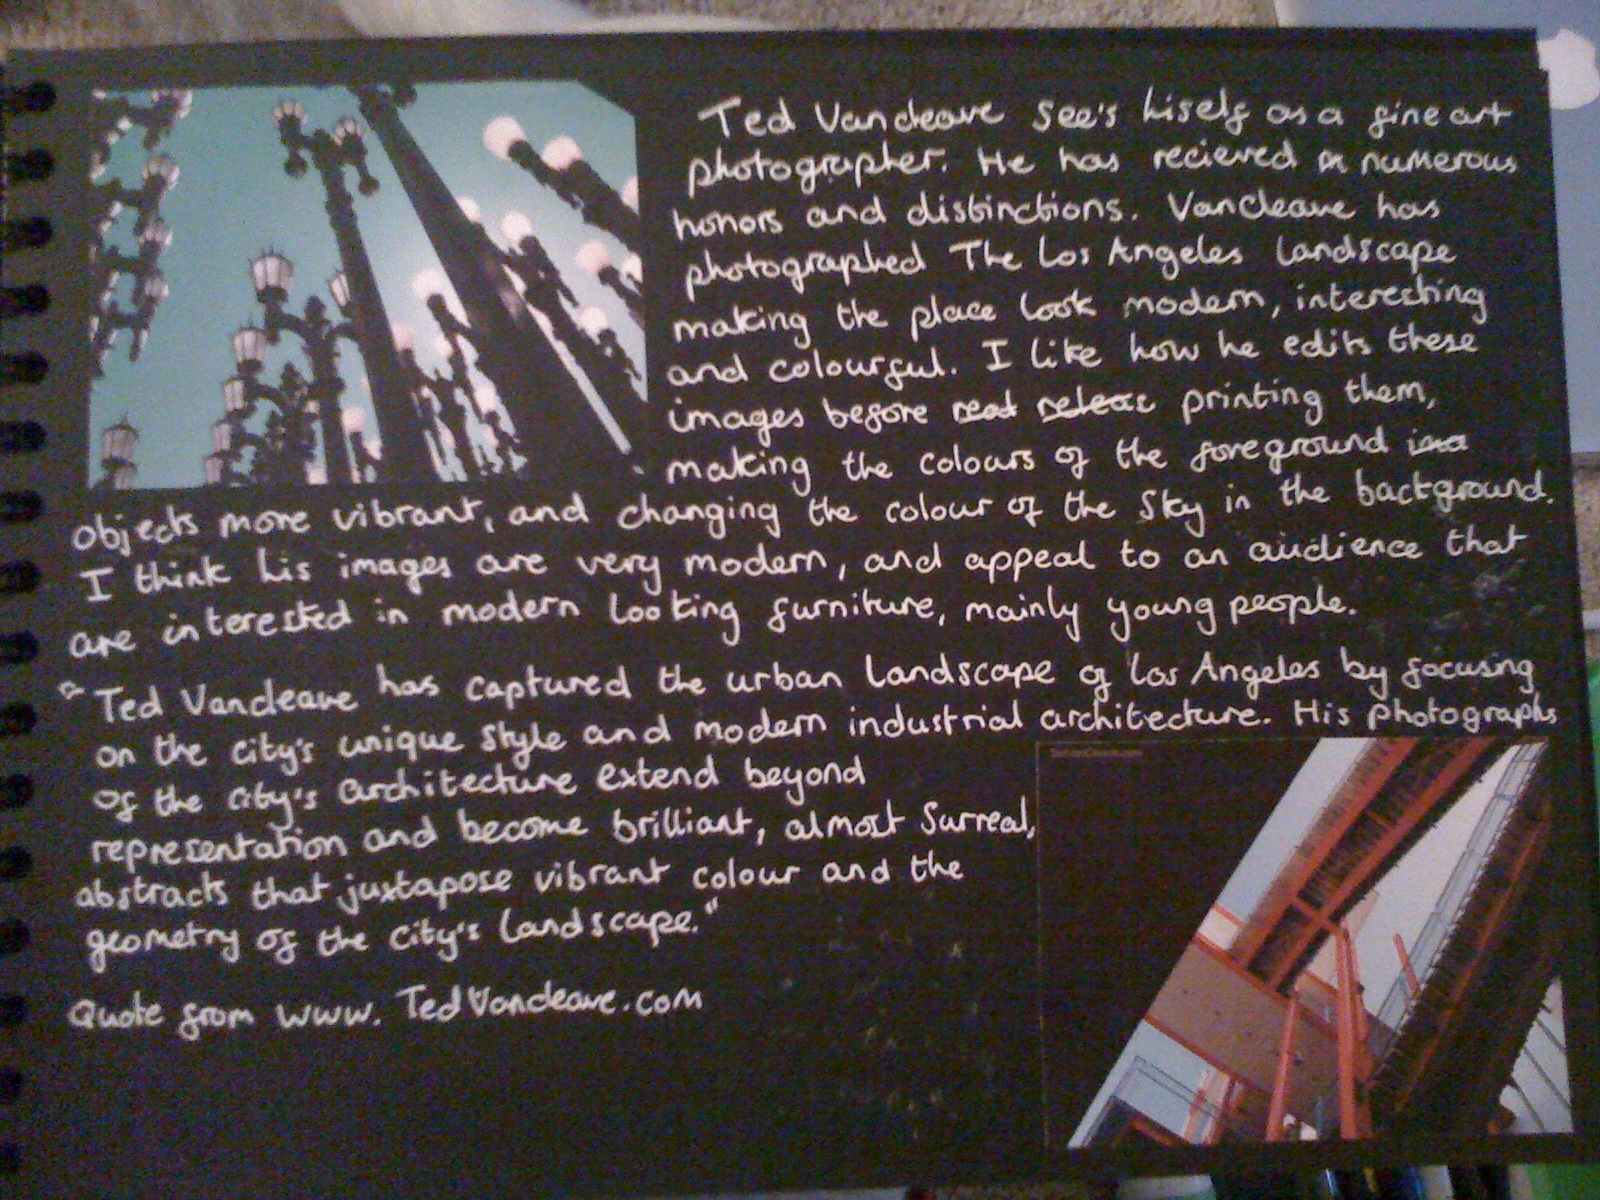 Ted Vancleave See's hiself as a fine art
photographer. He has recieved numerous
honors and distinctions. Vancleave has
photographed The Los Angeles landscape
making the place look modern, interesting
and colourful. I like how he edits these
images before printing them,
making the colours of the foreground
objects more vibrant, and changing the colour of the sky in the background.
I think his images are very modern, and appeal to an audience that
are interested in modern looking furniture, mainly young people.
"Ted Vancleave has captured the urban landscape of Los Angeles by focusing
on the city's unique style and modern industrial architecture. His photographs
of the city's architecture extend beyond
representation and become brilliant, almost surreal,
abstracts that juxtapose vibrant colour and the
geometry of the city's landscape."
Quote from www.TedVancleave.com